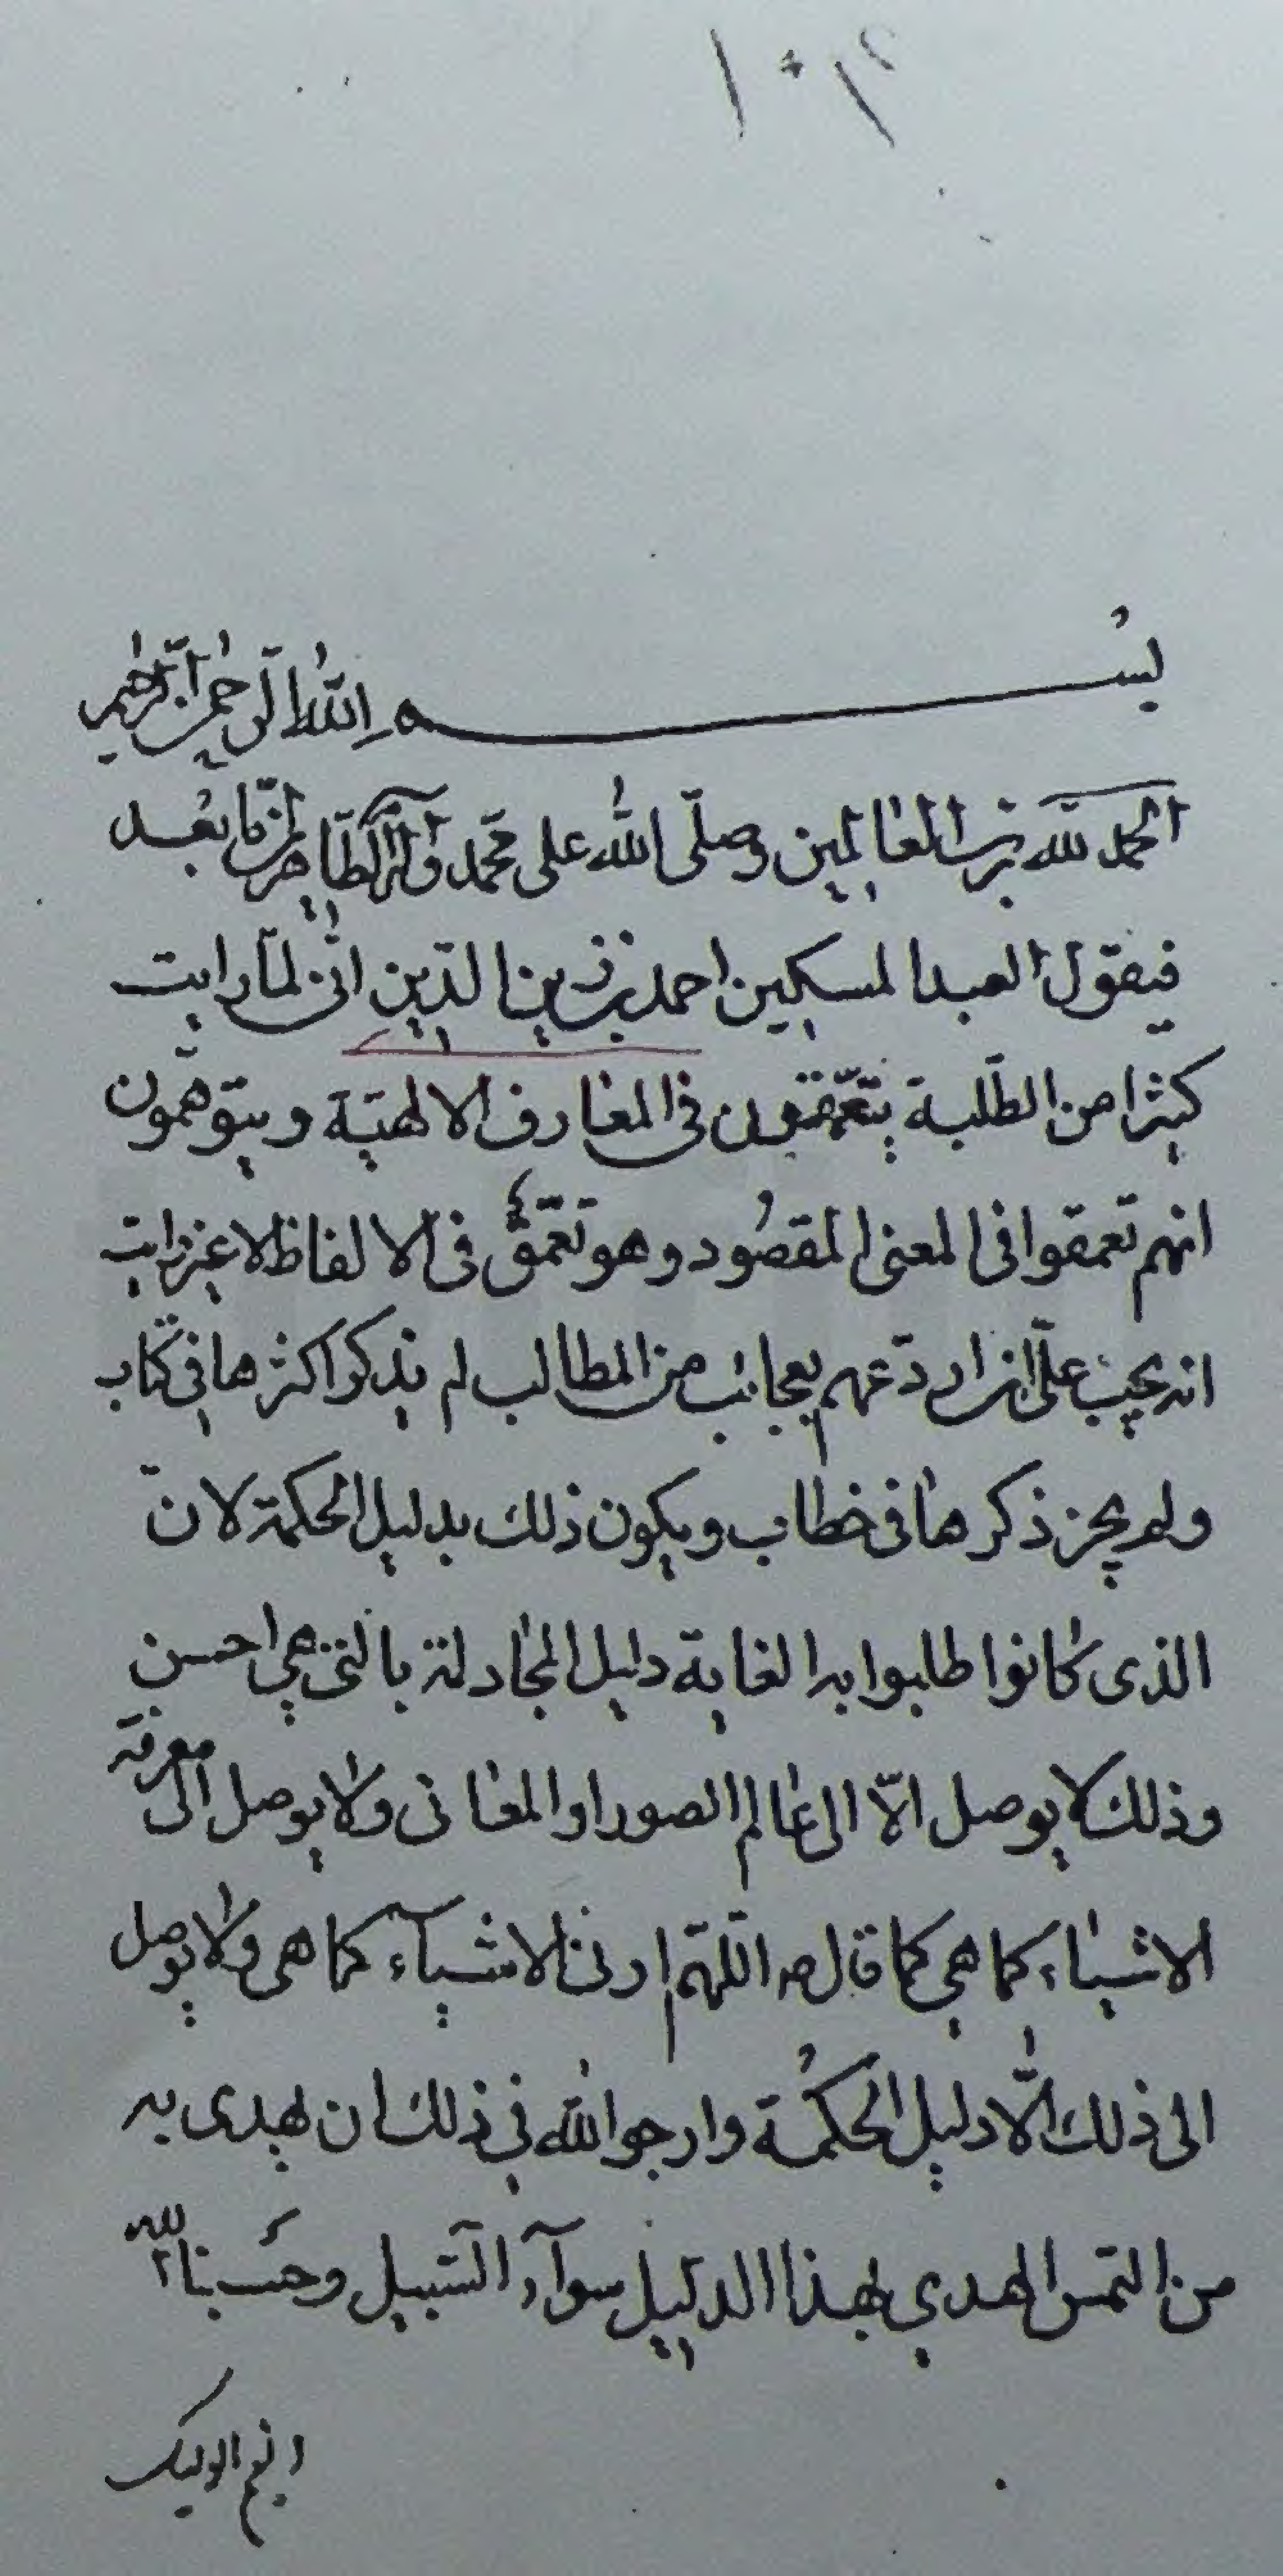 بسم الله الرحمن الرحيم
الحمد لله رب العالمين وصلّى الله على محمّد وآله الطّاهرين امّا بعد
فيقول العبد المسكين احمد بن زين الدّين انّى لمّا رايت
كثيرا من الطّلبة يتعمّقون فى المعارف الالهيّة ويتوهّمون
انهم تعمقوا فى المعنى المقصُود وهو تعمّق فى الالفاظ لا غير رايت
انه يجب علىّ ان اردّ عهم بعجائب من المطالب لم يذكر اكثرها فى كتاب
ولم يجز ذكرها فى خطاب ويكون ذلك بدليل الحكمة لانّ
الذى كانوا طلبوا به الغاية دليل المجادلة بالتى هى احسن
وذلك لا يوصل الّا الى عالم الصور او المعانى ولا يوصل الى معرفة
الاشياء كما هى كما قال ص اللّهمّ ارنى الاشيآء كما هى ولا يوصل
الى ذلك الّا دليل الحكمة وارجو الله فى ذلك ان يهدى به
من التمس الهدى بهذا الدليل سوآء السّبيل وحسبنا الله
ونعم الوكيل